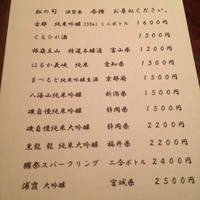 松の司 滋賀県 各種 お尋ねください。
古都 純米吟醸 330mlミニボトル 1600円
くえひれ酒 1300円
銀嶺立山 特選本醸造 富山県 1200円
はるか夷峡 純米 愛知県 1300円
まつもと 純米吟醸生酒 京都府 1500円
八海山大吟醸 新潟県 1500円
磯自慢純米大吟醸 静岡県
磯自慢純米大吟醸 静岡県 2200円
黒龍 龍 純米大吟醸 福井県 2200円
獺祭スパークリング 二合ボトル 2400円
浦霞 大吟醸 宮城県 2500円